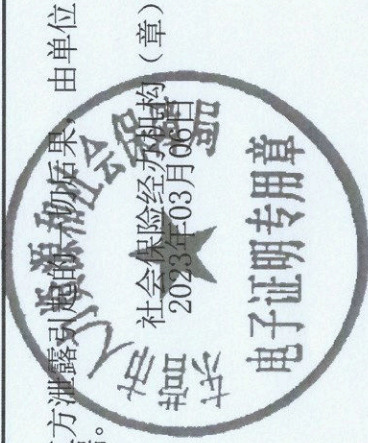 方泄露引起的一切后果，由单位
。
社会保险经办机构（章）
2023年03月06日
人力资源和社会保
电子证明专用章